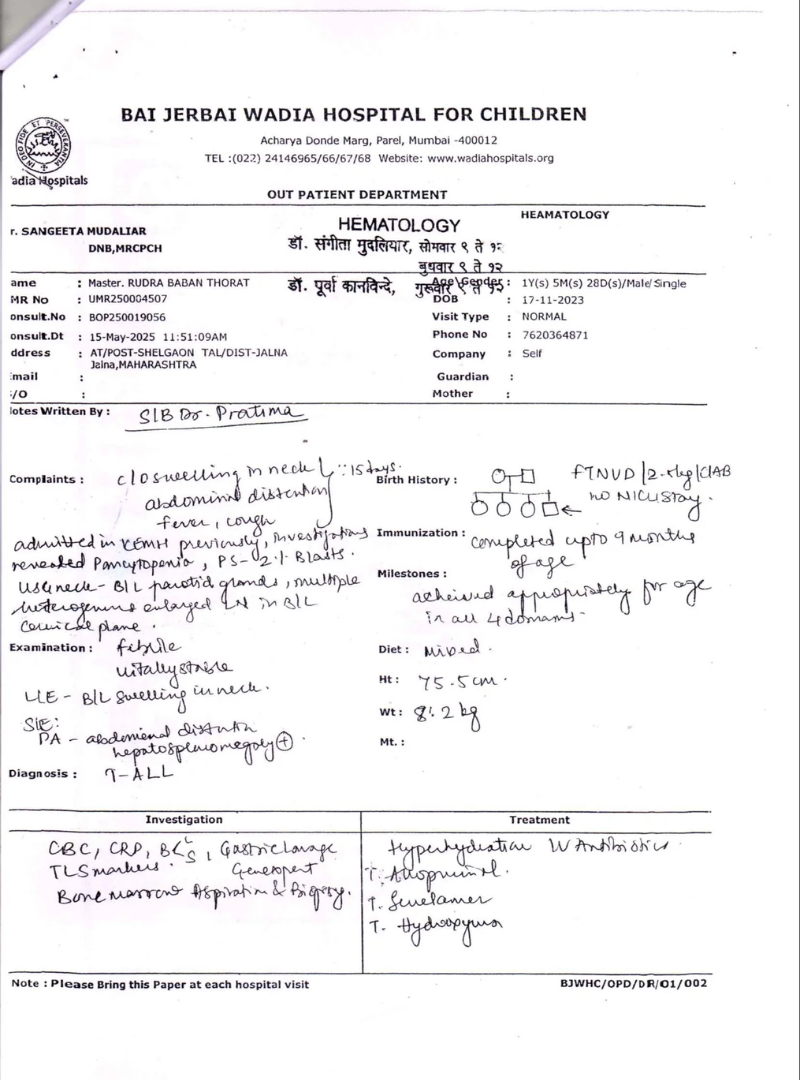 BAI JERBAI WADIA HOSPITAL FOR CHILDREN
Acharya Donde Marg, Parel, Mumbai -400012
TEL :(022) 24146965/66/67/68 Website: www.wadiahospitals.org
IN DEO FIDE ET PERSEVERANTIA
adia Hospitals
OUT PATIENT DEPARTMENT
r. SANGEETA MUDALIAR
DNB,MRCPCH
HEMATOLOGY
HEAMATOLOGY
डॉ. संगीता मुदलियार, सोमवार ९ ते १२
बुधवार ९ ते १२
डॉ. पूर्वा कानविन्दे, गुरूवार ९ ते १२
ame : Master. RUDRA BABAN THORAT
Age\Gender : 1Y(s) 5M(s) 28D(s)/Male/Single
MR No : UMR250004507
DOB : 17-11-2023
onsult.No : BOP250019056
Visit Type : NORMAL
onsult.Dt : 15-May-2025 11:51:09AM
Phone No : 7620364871
ddress : AT/POST-SHELGAON TAL/DIST-JALNA
Jalna,MAHARASHTRA
Company : Self
mail :
Guardian :
/O :
Mother :
lotes Written By : S/B Dr. Pratima
Complaints : c/o swelling in neck 15 days.
abdominal distention
fever, cough
admitted in KEMH previously, investigations
revealed Pancytopenia, PS- 02% Blasts.
USG neck- B/L parotid glands, multiple
heterogenous enlarged LN in B/L
cervical plane.
Birth History : FTNVD/2.5kg/CIAB
no NICU stay.
Immunization : completed upto 9 months
of age
Milestones : acheived appropriately for age
in all 4 domains.
Examination : febrile
vitally stable
L/E - B/L swelling in neck.
S/E:
PA - abdominal distention
hepatosplenomegaly +
Diet : Mixed.
Ht : 75.5 cm.
Wt : 8.2 kg
Mt. :
Diagnosis : T-ALL
Investigation
CBC, CRP, BC/S, Gastric lavage
TLS markers. Genexpert
Bone marrow Aspiration & Biopsy.
Treatment
Hyperhydration IV Antibiotics
T. Allopurinol.
T. Sevelamer
T. Hydroxyurea
Note : Please Bring this Paper at each hospital visit
BJWHC/OPD/DR/01/002